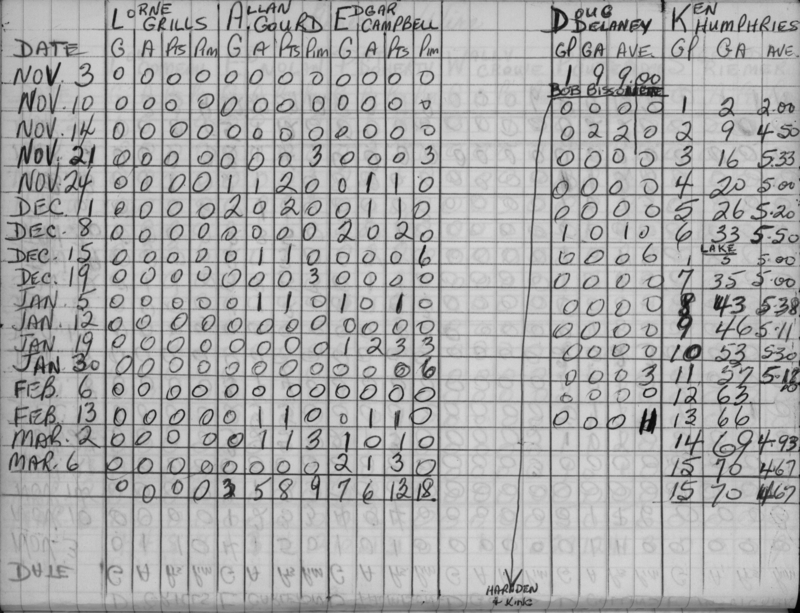 LORNE GRILLS ALLAN GOURD EDGAR CAMPBELL DOUG DELANEY KEN HUMPHRIES
DATE G A Pts Pim G A Pts Pim G A Pts Pim GP GA AVE. GP GA AVE.
NOV. 3 0 0 0 0 0 0 0 0 0 0 0 0 1 9 9.00
BOB BISSONETTE
NOV. 10 0 0 0 0 0 0 0 0 0 0 0 0 0 0 0 0 1 2 2.00
NOV. 14 0 0 0 0 0 0 0 0 0 0 0 0 0 2 2 0 2 9 4.50
NOV. 21 0 0 0 0 0 0 0 3 0 0 0 3 0 0 0 0 3 16 5.33
NOV. 24 0 0 0 0 1 1 2 0 0 1 1 0 0 0 0 0 4 20 5.00
DEC. 1 0 0 0 0 2 0 2 0 0 1 1 0 0 0 0 0 5 26 5.20
DEC. 8 0 0 0 0 0 0 0 0 2 0 2 0 1 0 1 0 6 33 5.50
LAKE
DEC. 15 0 0 0 0 0 1 1 0 0 0 0 6 0 0 0 6 1 5 5.00
DEC. 19 0 0 0 0 0 0 0 3 0 0 0 0 0 0 0 0 7 35 5.00
JAN. 5 0 0 0 0 0 1 1 0 1 0 1 0 0 0 0 0 8 43 5.38
JAN. 12 0 0 0 0 0 0 0 0 0 0 0 0 0 0 0 0 9 46 5.11
JAN. 19 0 0 0 0 0 0 0 0 1 2 3 3 0 0 0 0 10 53 5.30
JAN 30 0 0 0 0 0 0 0 0 0 0 0 6 0 0 0 3 11 57 5.18
FEB. 6 0 0 0 0 0 0 0 0 0 0 0 0 0 0 0 0 12 63
FEB. 13 0 0 0 0 0 1 1 0 0 1 1 0 0 0 0 13 66
MAR. 2 0 0 0 0 0 1 1 3 1 0 1 0 14 69 4.93
MAR. 6 0 0 0 0 0 0 0 0 2 1 3 0 15 70 4.67
0 0 0 0 3 5 8 9 7 6 13 18 15 70 4.67
HARDEN
& KING